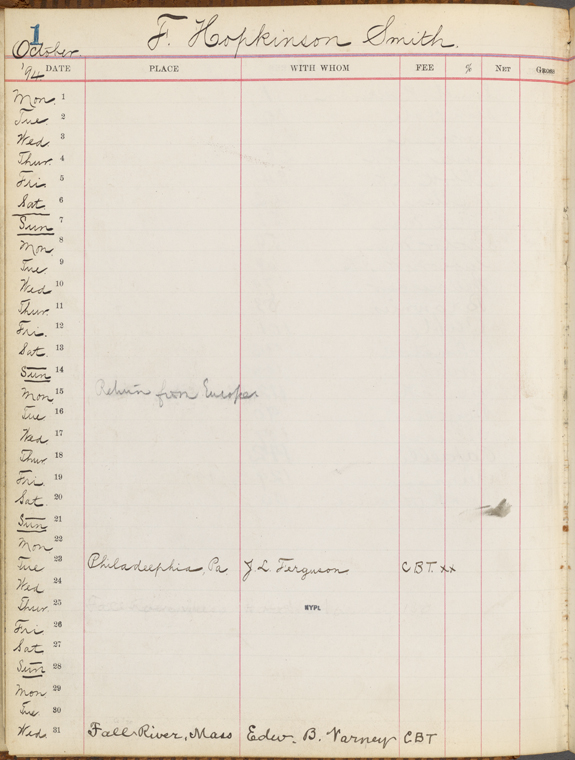 1
F. Hopkinson Smith.
October
'94 DATE PLACE WITH WHOM FEE % NET GROSS
Mon 1
Tue 2
Wed 3
Thur. 4
Fri. 5
Sat. 6
Sun 7
Mon 8
Tue 9
Wed 10
Thur. 11
Fri. 12
Sat. 13
Sun 14
Mon 15 Return from Europe.
Tue 16
Wed 17
Thur 18
Fri. 19
Sat 20
Sun 21
Mon 22
Tue 23 Philadelphia, Pa. J L Ferguson CBT. xx
Wed 24
Thur. 25
NYPL
Fri 26
Sat 27
Sun 28
Mon 29
Tue. 30
Wed. 31 Fall River, Mass Edw. B. Varney CBT